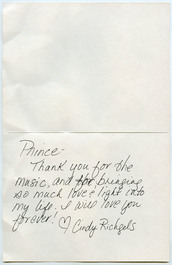 Prince-
Thank you for the
music, and for bringing
so much love & light into
my life. I will love you
forever! ♡ Cindy Richgels